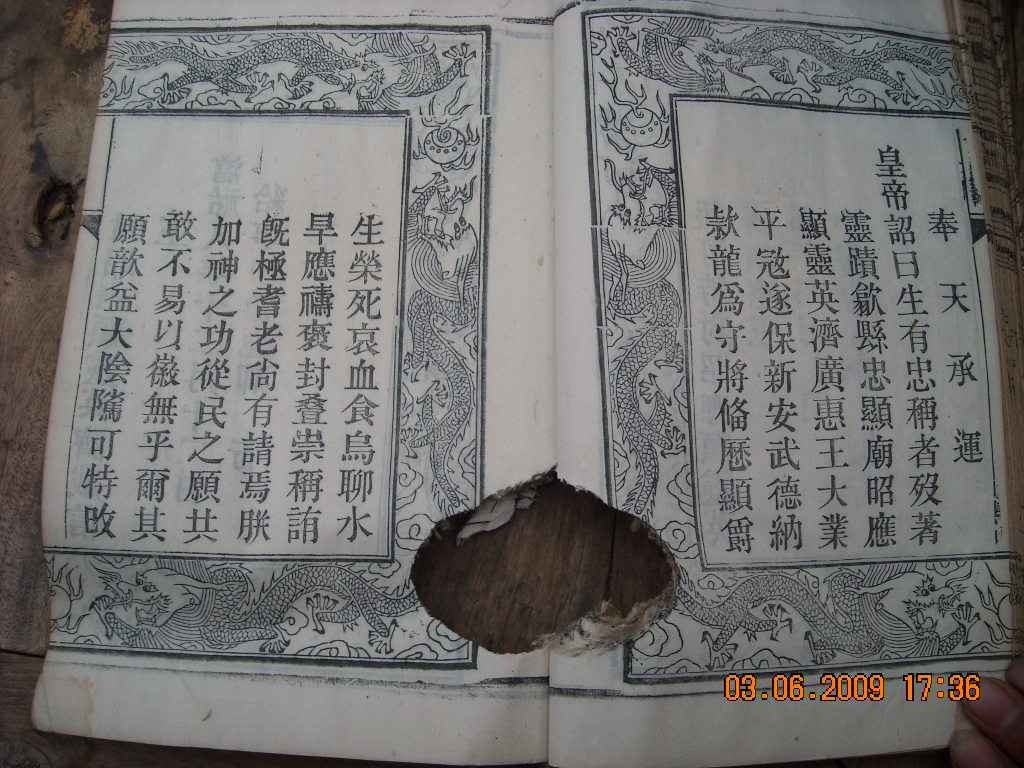 奉天承運
皇帝詔曰生有忠稱者歿著
靈蹟歙縣忠顯廟昭應
顯靈英濟廣惠王大業
平寇遂保新安武德納
款龍爲守將偹歷顯爵
生榮死哀血食烏聊水
旱應禱褒封疊崇稱誥
旣極耆老尙有請焉朕
加神之功從民之願共
敢不易以徽無乎爾其
願歆益大陰隲可特敀
03.06.2009 17:36